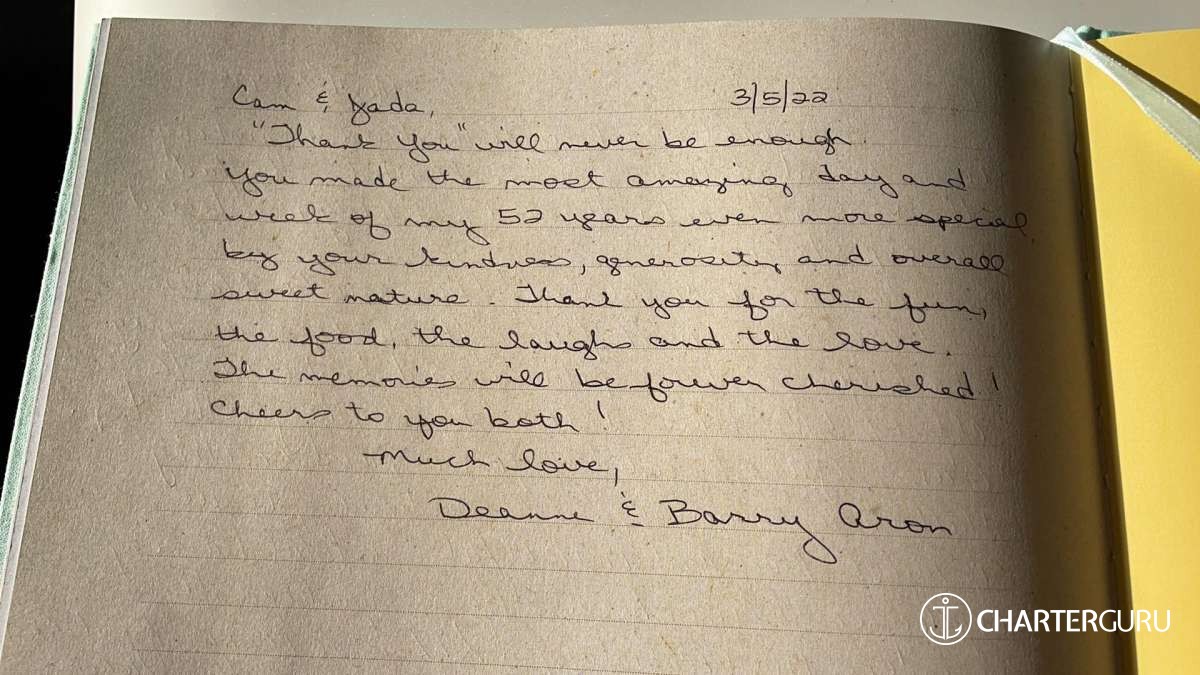 Cam & Jada, 3/5/22
"Thank you" will never be enough.
You made the most amazing day and
week of my 52 years even more special
by your kindness, generosity and overall
sweet nature. Thank you for the fun,
the food, the laughs and the love.
The memories will be forever cherished!
Cheers to you both!
Much love,
Deanne & Barry Aron
CHARTERGURU